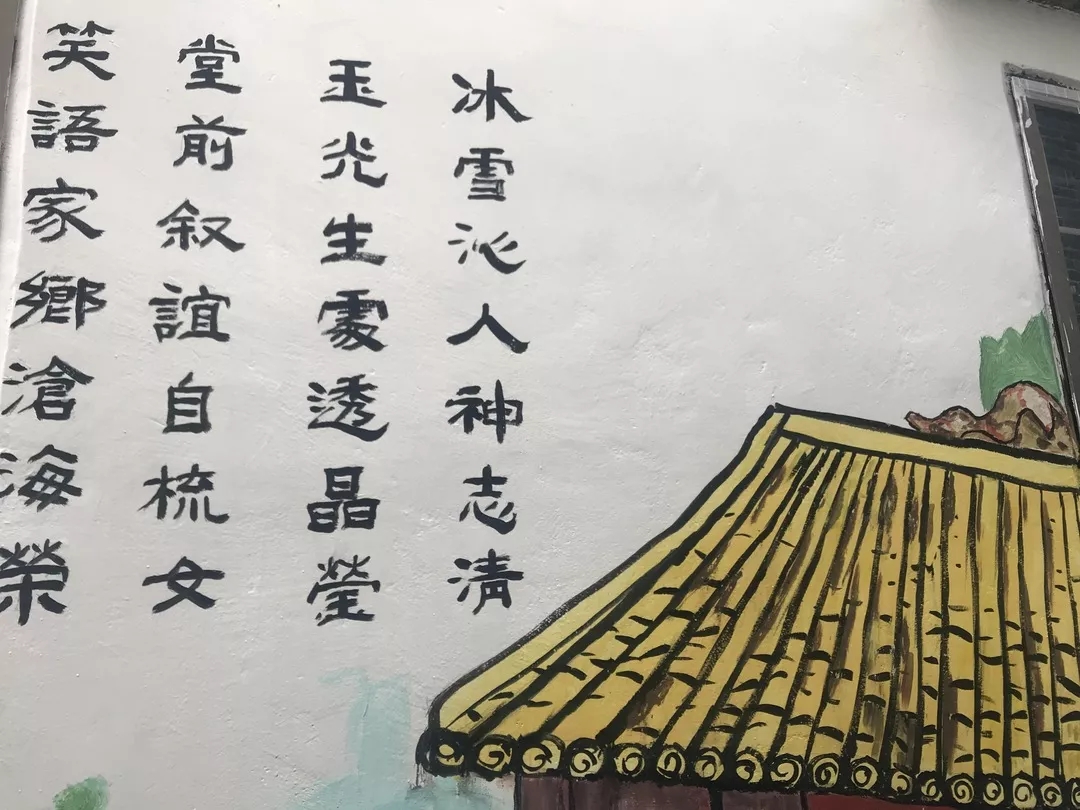 冰雪沁人神志清
玉光生處透晶瑩
堂前叙誼自梳女
笑語家鄉滄海榮